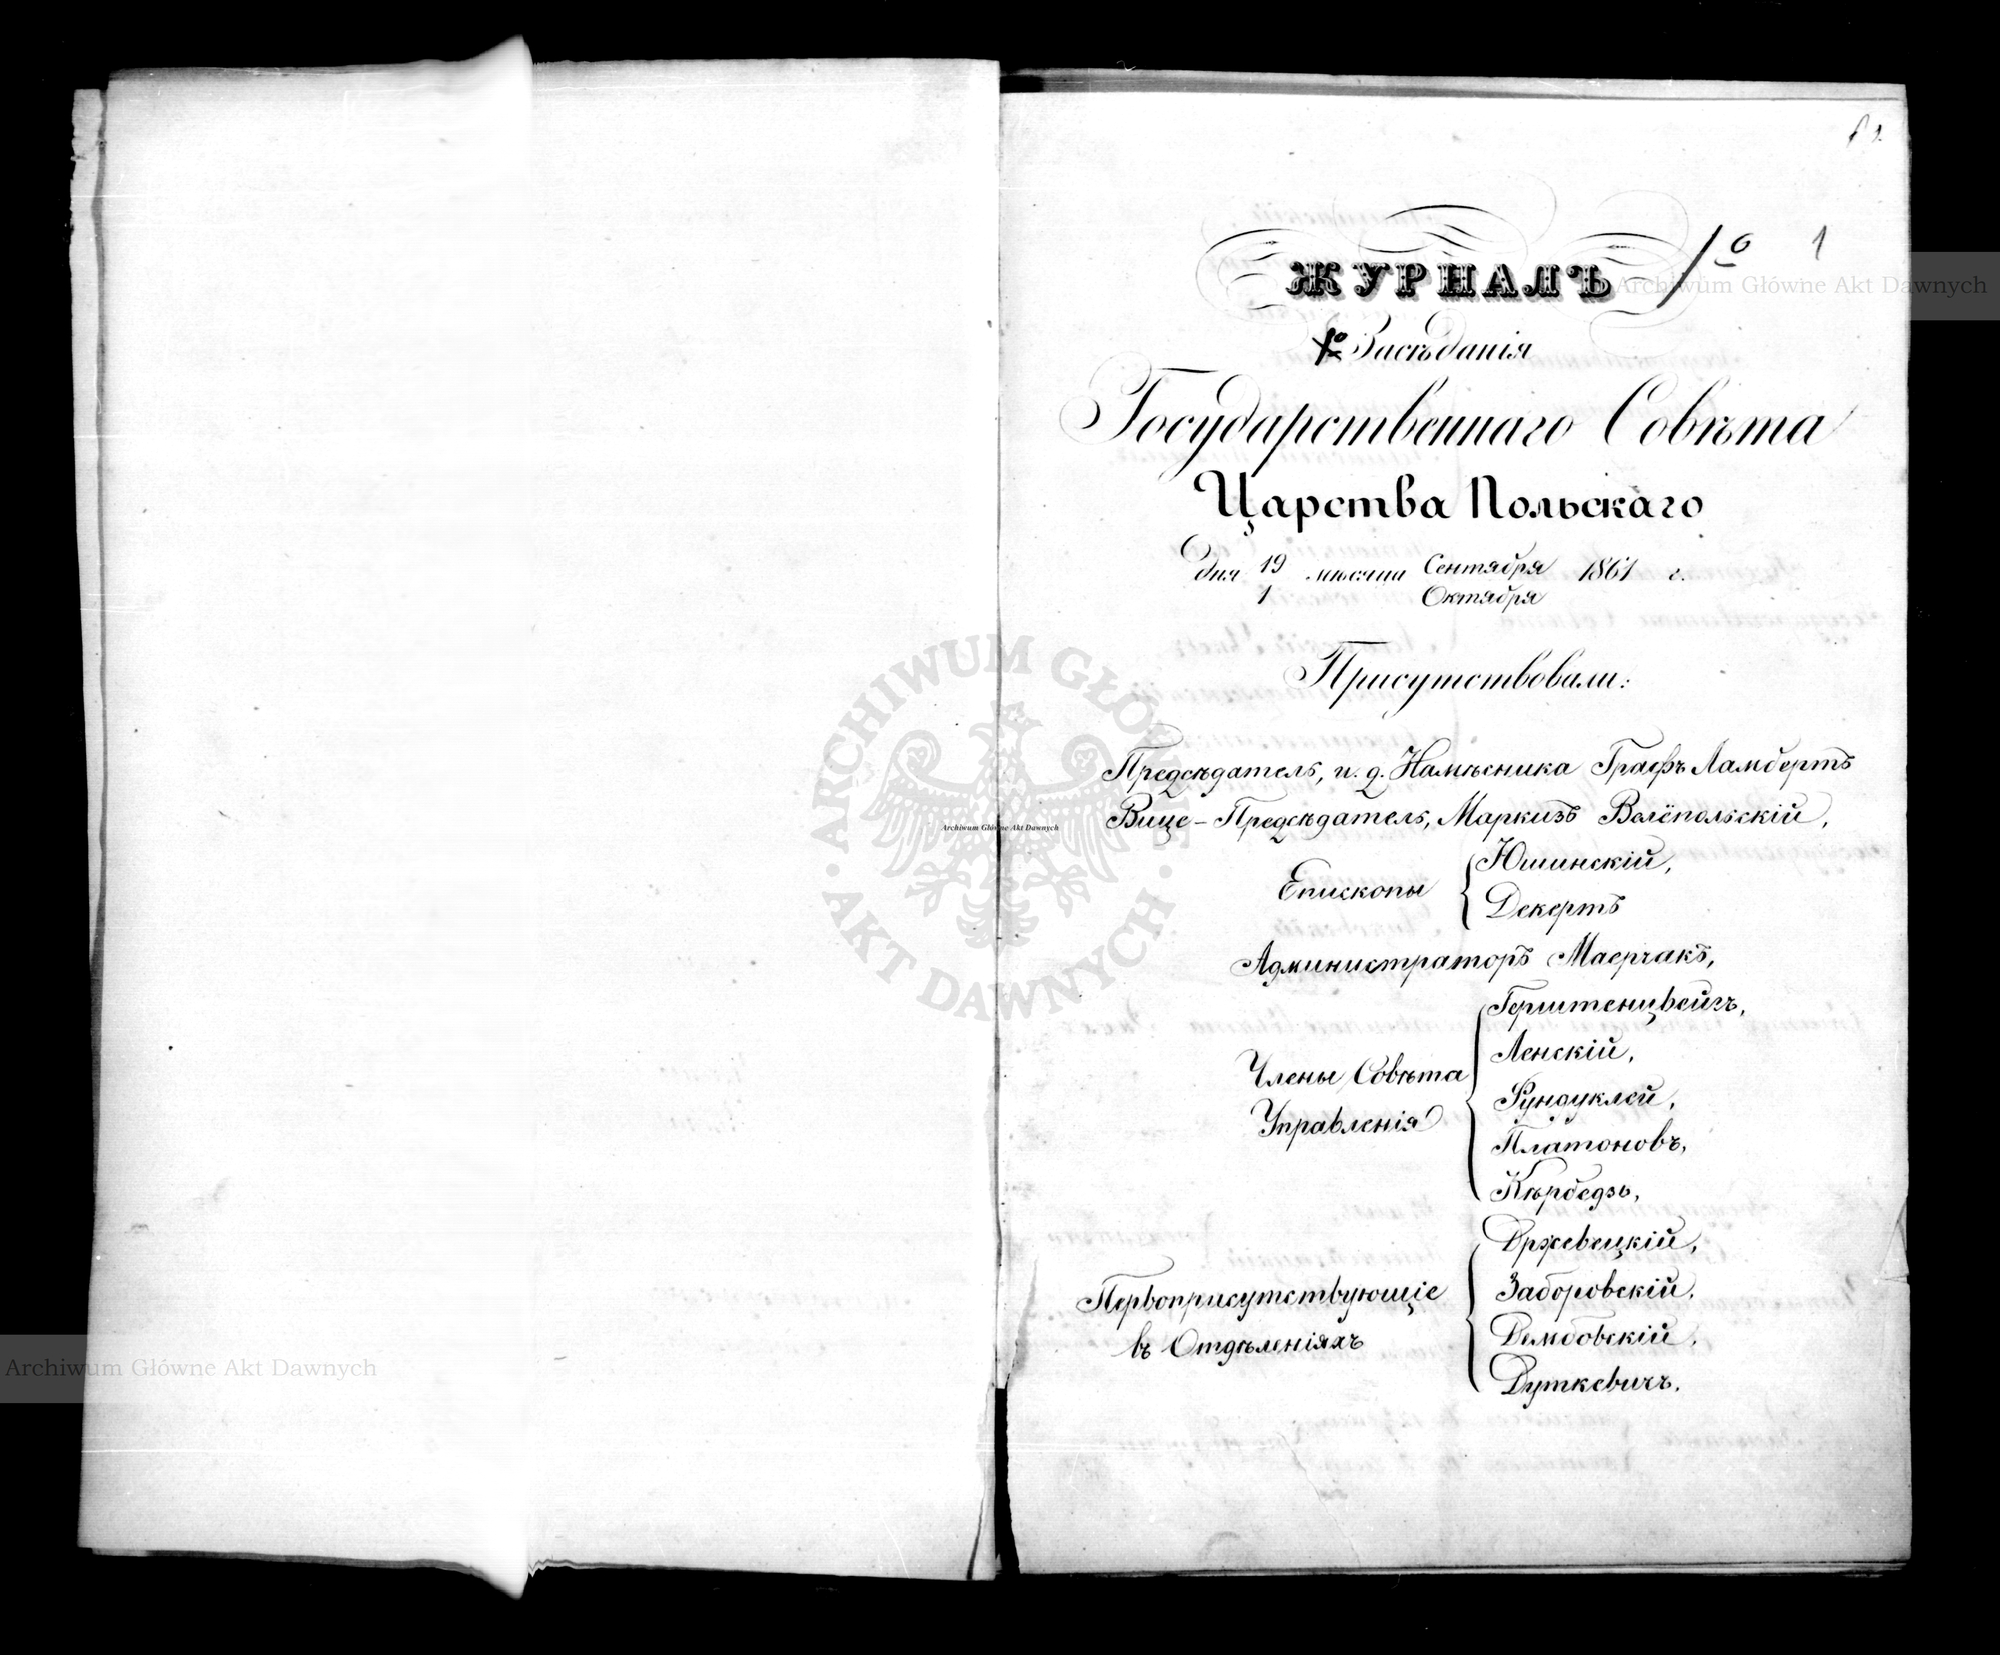 ЖУРНАЛЪ 1º 1
1º Засѣданія
Государственнаго Совѣта
Царства Польскаго
дня 19 мѣсяца Сентября 1861 г.
1 Октября
Присутствовали:
Предсѣдатель, и. д. Намѣсника Графъ Ламбертъ
Вице-Предсѣдатель, Маркизъ Велёпольскій,
Епископы
Юшинскій,
Декертъ
Администраторъ Маерчакъ,
Члены Совѣта
Управленія
Герштенцвейгъ,
Ленскій,
Фундуклей,
Платоновъ,
Кѣрбедзь,
Первоприсутствующіе
въ Отдѣленіяхъ
Држевецкій,
Заборовскій,
Дембовскій,
Дуткевичъ.
Archiwum Główne Akt Dawnych
Archiwum Główne Akt Dawnych
Archiwum Główne Akt Dawnych
ARCHIWUM GŁÓWNE
AKT DAWNYCH